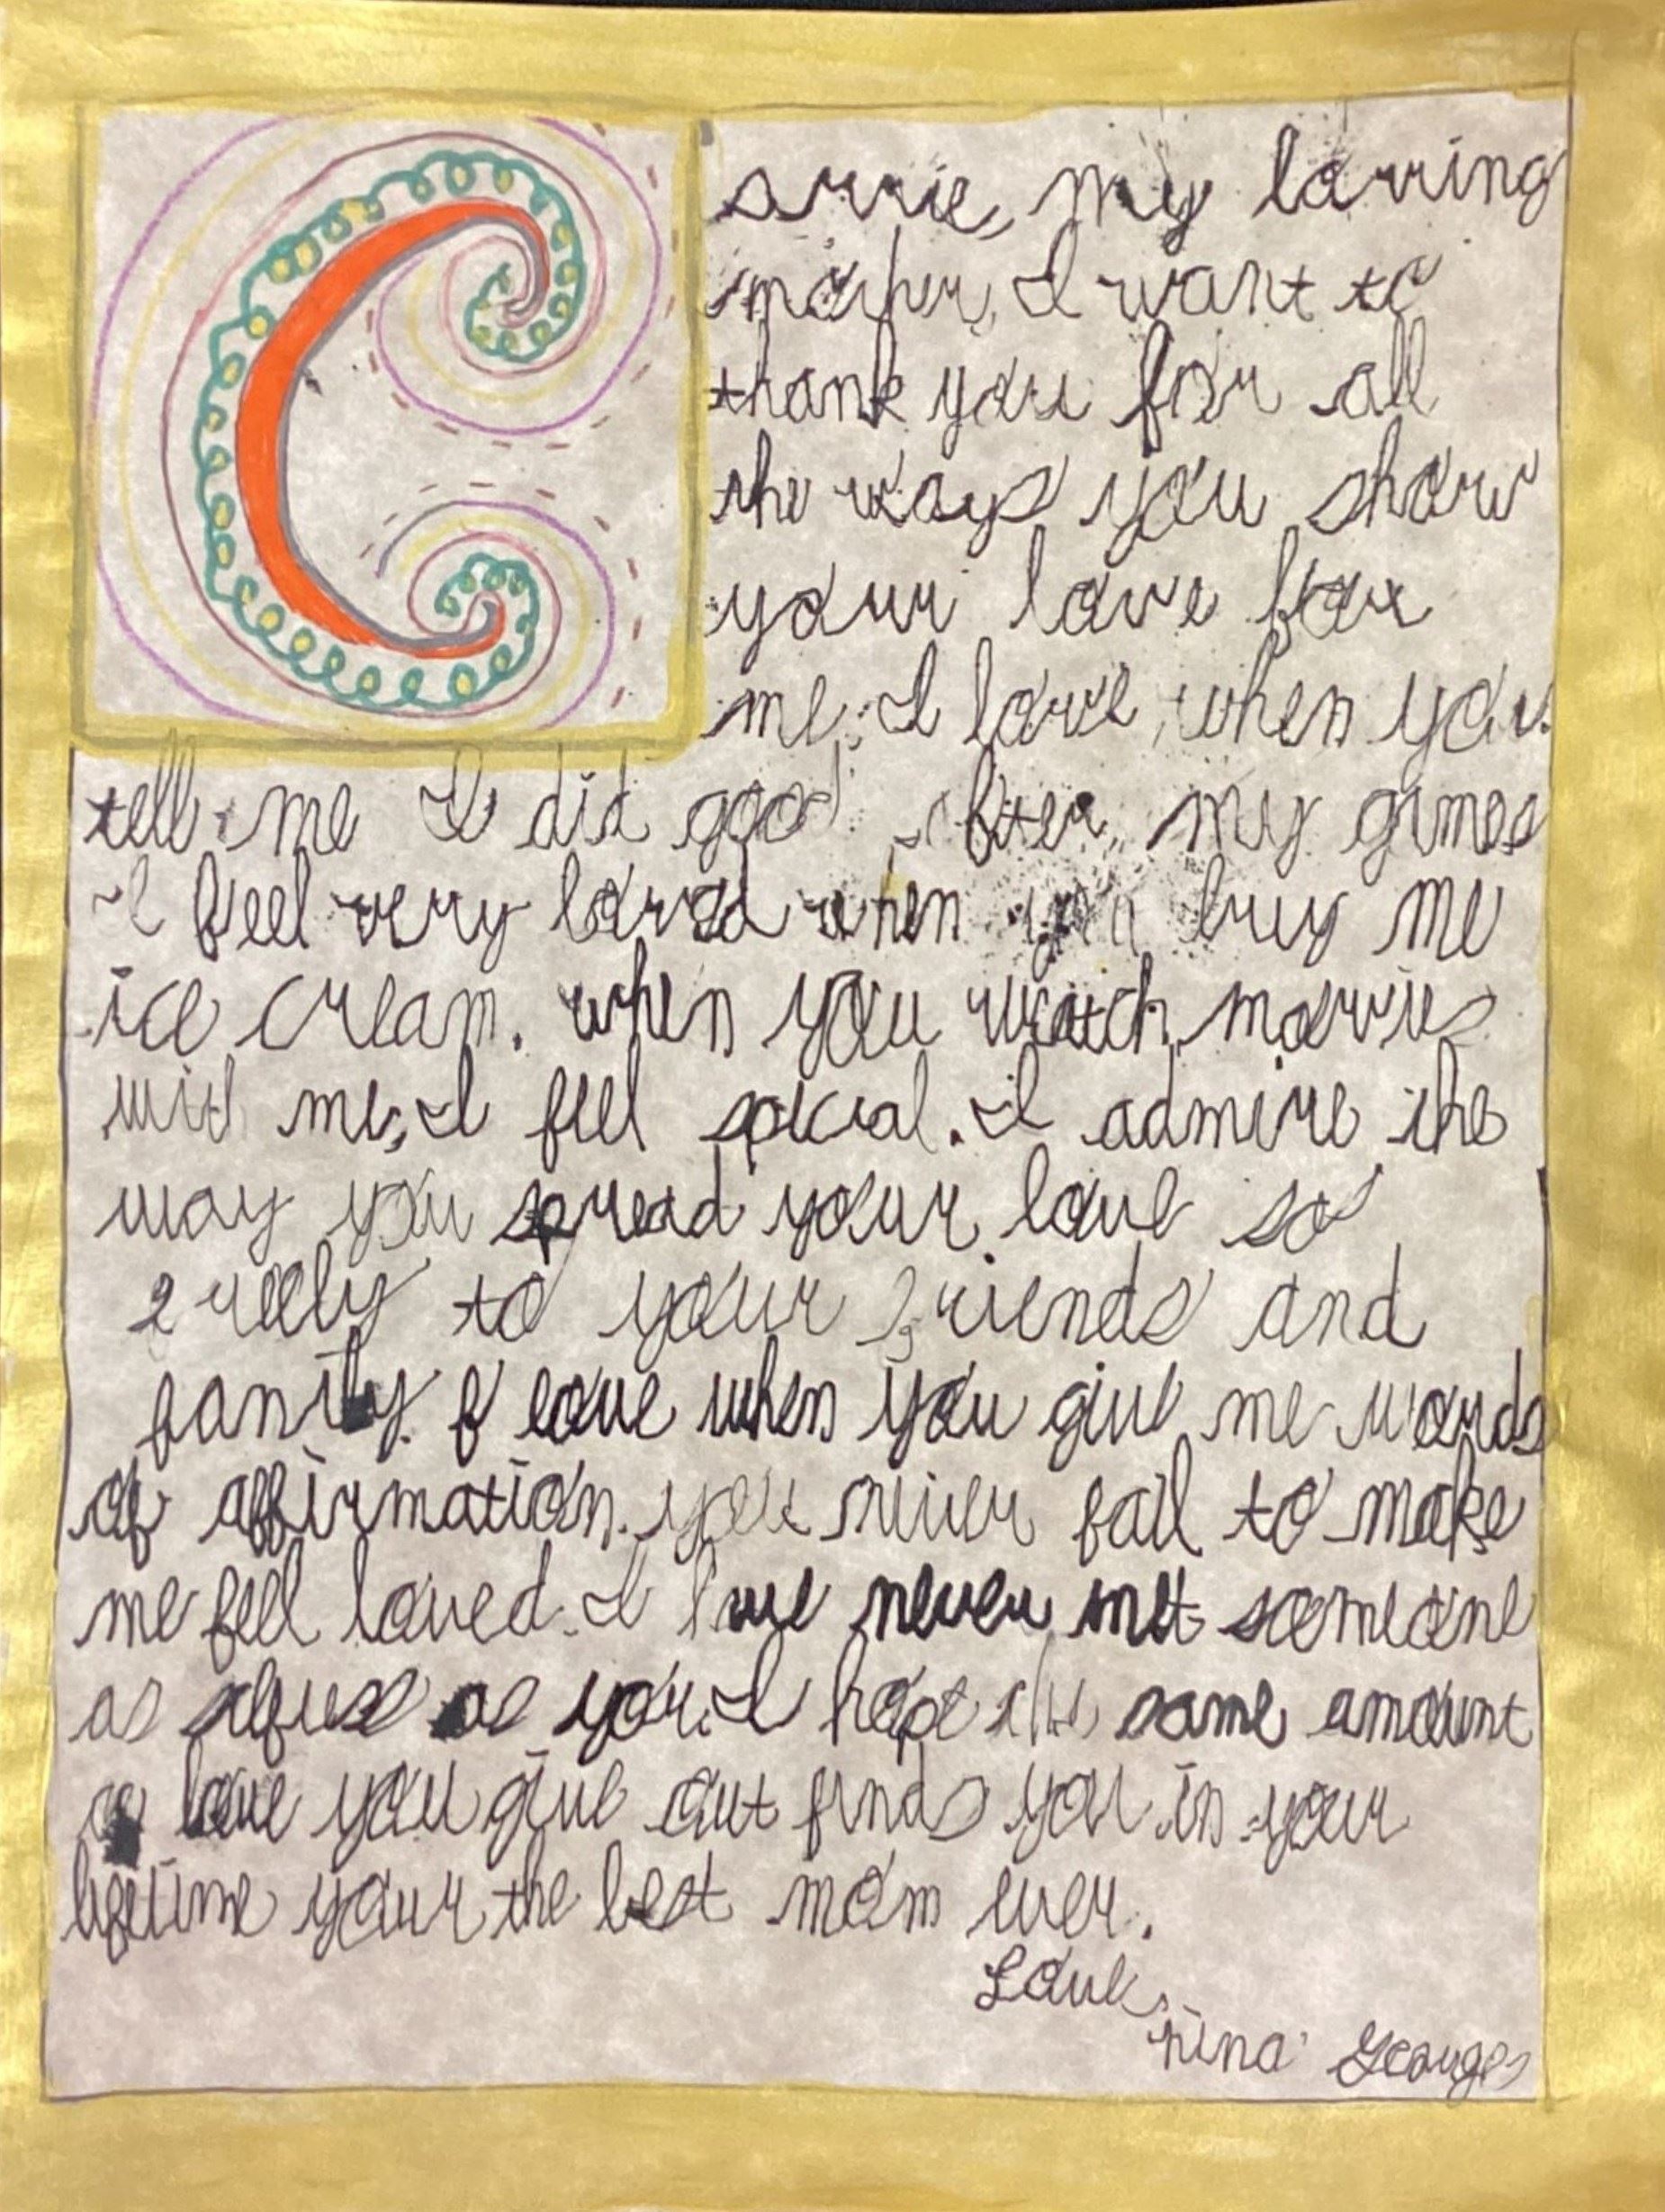 Carrie, my loving
mother, I want to
thank you for all
the ways you show
your love for
me. I love when you
tell me I did good after my games
I feel very loved when you buy me
ice cream. when you watch movies
with me, I feel special. I admire the
way you spread your love so
freely to your friends and
family. I love when you give me words
of affirmation. you never fail to make
me feel loved. I have never met someone
as as you. I hope the same amount
of love you give out finds you in your
lifetime your the best mom ever.
Love,
nina Georges